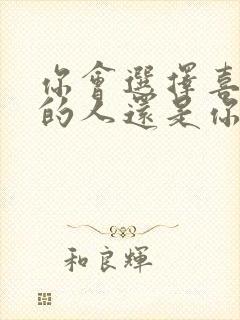 你會選擇喜
的人還是你
和良輝